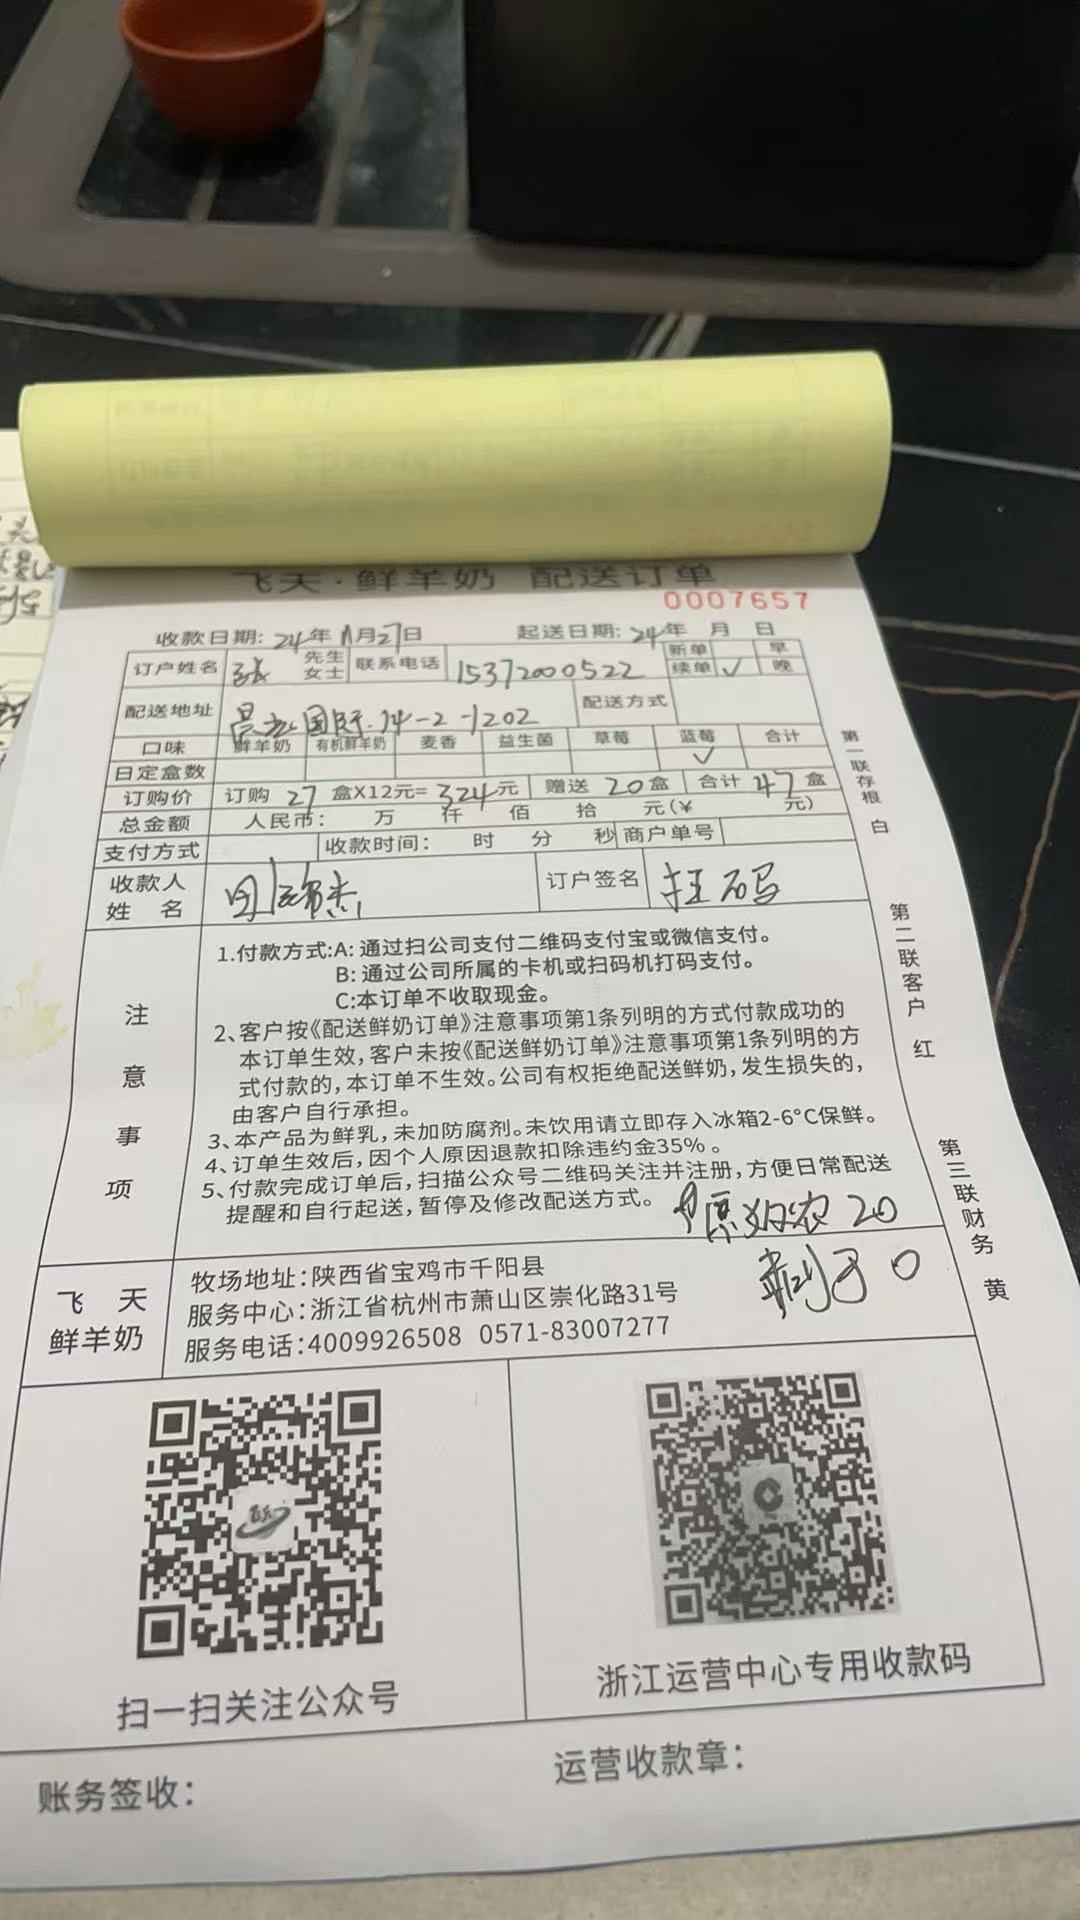 飞天·鲜羊奶 配送订单
0007657
收款日期: 24年11月27日 起送日期: 24年 月 日
订户姓名 张 先生 女士 联系电话 15372000522 新单 续单 ✓ 早 晚
配送地址 国际.14-2-1202 配送方式
口味 鲜羊奶 有机鲜羊奶 麦香 益生菌 草莓 蓝莓 合计
日定盒数 ✓
订购价 订购 27 盒X12元= 324元 赠送 20盒 合计 47盒
总金额 人民币: 万 仟 佰 拾 元(¥ 元)
支付方式 收款时间: 时 分 秒 商户单号
收款人姓名 订户签名 扫码
注意事项
1.付款方式:A: 通过扫公司支付二维码支付宝或微信支付。
B: 通过公司所属的卡机或扫码机打码支付。
C:本订单不收取现金。
2、客户按《配送鲜奶订单》注意事项第1条列明的方式付款成功的
本订单生效，客户未按《配送鲜奶订单》注意事项第1条列明的方
式付款的，本订单不生效。公司有权拒绝配送鲜奶，发生损失的，
由客户自行承担。
3、本产品为鲜乳，未加防腐剂。未饮用请立即存入冰箱2-6°C保鲜。
4、订单生效后，因个人原因退款扣除违约金35%。
5、付款完成订单后，扫描公众号二维码关注并注册，方便日常配送
提醒和自行起送，暂停及修改配送方式。
20
0
飞天
鲜羊奶
牧场地址:陕西省宝鸡市千阳县
服务中心:浙江省杭州市萧山区崇化路31号
服务电话:4009926508 0571-83007277
第一联存根 白
第二联客户 红
第三联财务 黄
扫一扫关注公众号
浙江运营中心专用收款码
账务签收：
运营收款章：